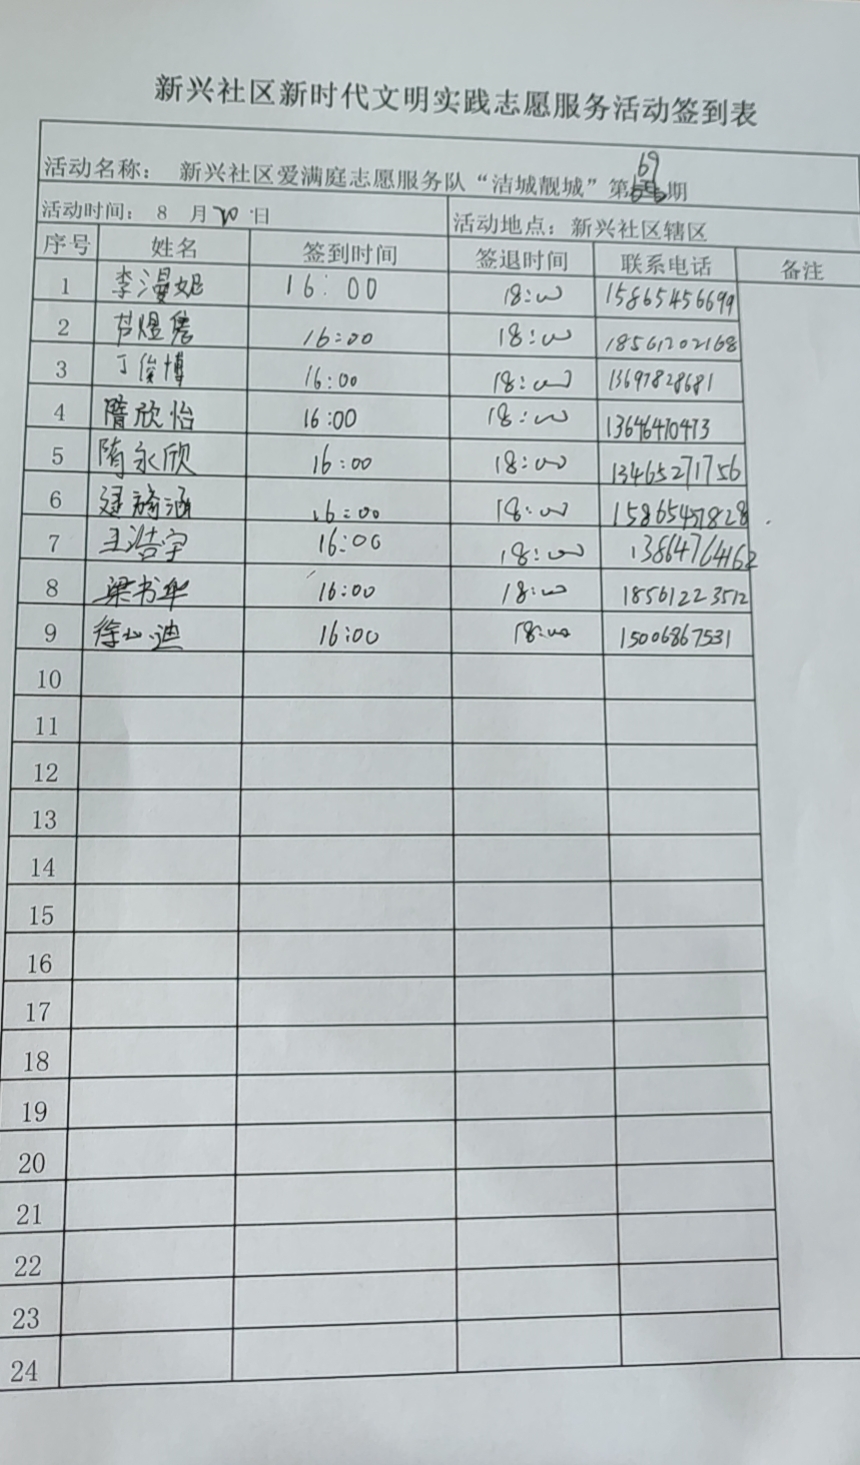 新兴社区新时代文明实践志愿服务活动签到表
活动名称： 新兴社区爱满庭志愿服务队“洁城靓城”第69期
活动时间：8 月20日 活动地点：新兴社区辖区
序号 姓名 签到时间 签退时间 联系电话 备注
1 李漫妮 16:00 18:00 15865456699
2 16:00 18:00 18561202168
3 丁俊博 16:00 18:00 13697828681
4 隋欣怡 16:00 18:00 13646470473
5 隋永欣 16:00 18:00 13465271756
6 16:00 18:00
7 王浩宇 16:00 18:00 13864764162
8 梁书华 16:00 18:00 18561223512
9 徐心迪 16:00 18:00 15006867531
10
11
12
13
14
15
16
17
18
19
20
21
22
23
24